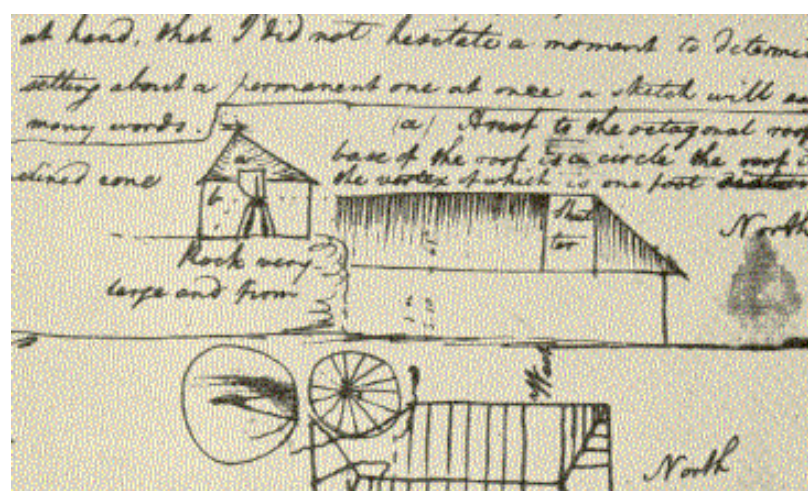 at hand, that I did not hesitate a moment to determin
setting about a permanent one at once a sketch will sa
many words.
(a) A roof to the octagonal roof
base of the roof is a circle the roof i
clined cone
the vertex of which is one foot
a
b
Shut
ter
North
Rock very
large and firm
North